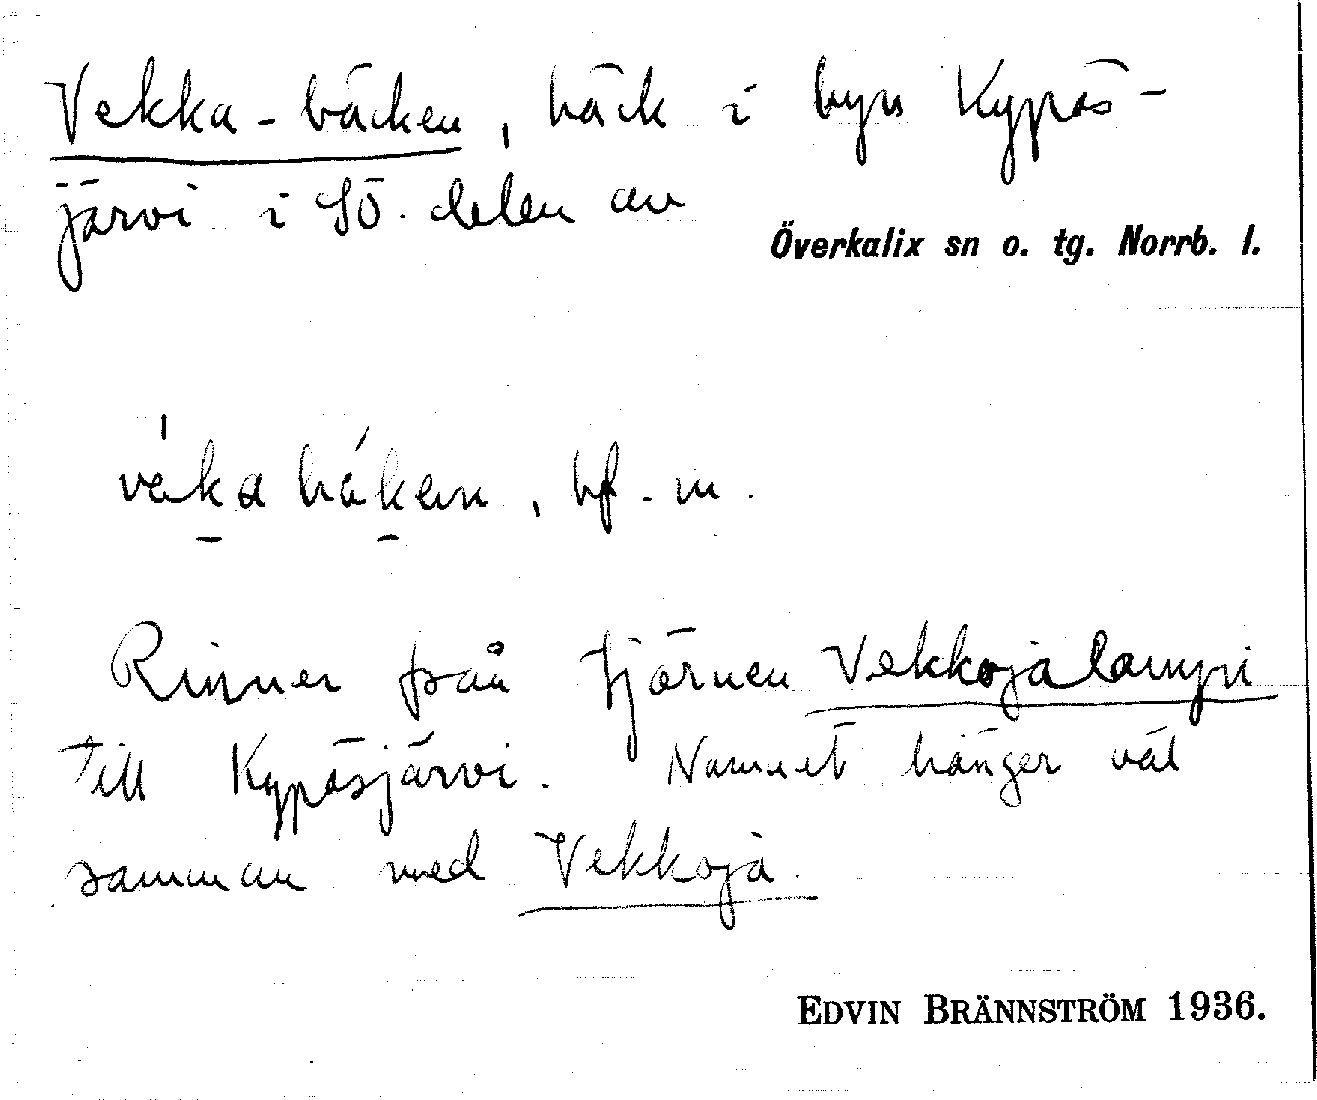 Vekka-bäcken, bäck i byn Kypäs-
järvi i SÖ. delen av
Överkalix sn o. tg. Norrb. l.
vèka bákan, bf. m.
Rinner från tjärnen Vekkojalampi
till Kypäsjärvi. Namnet hänger väl
samman med Vekkoja.
EDVIN BRÄNNSTRÖM 1936.